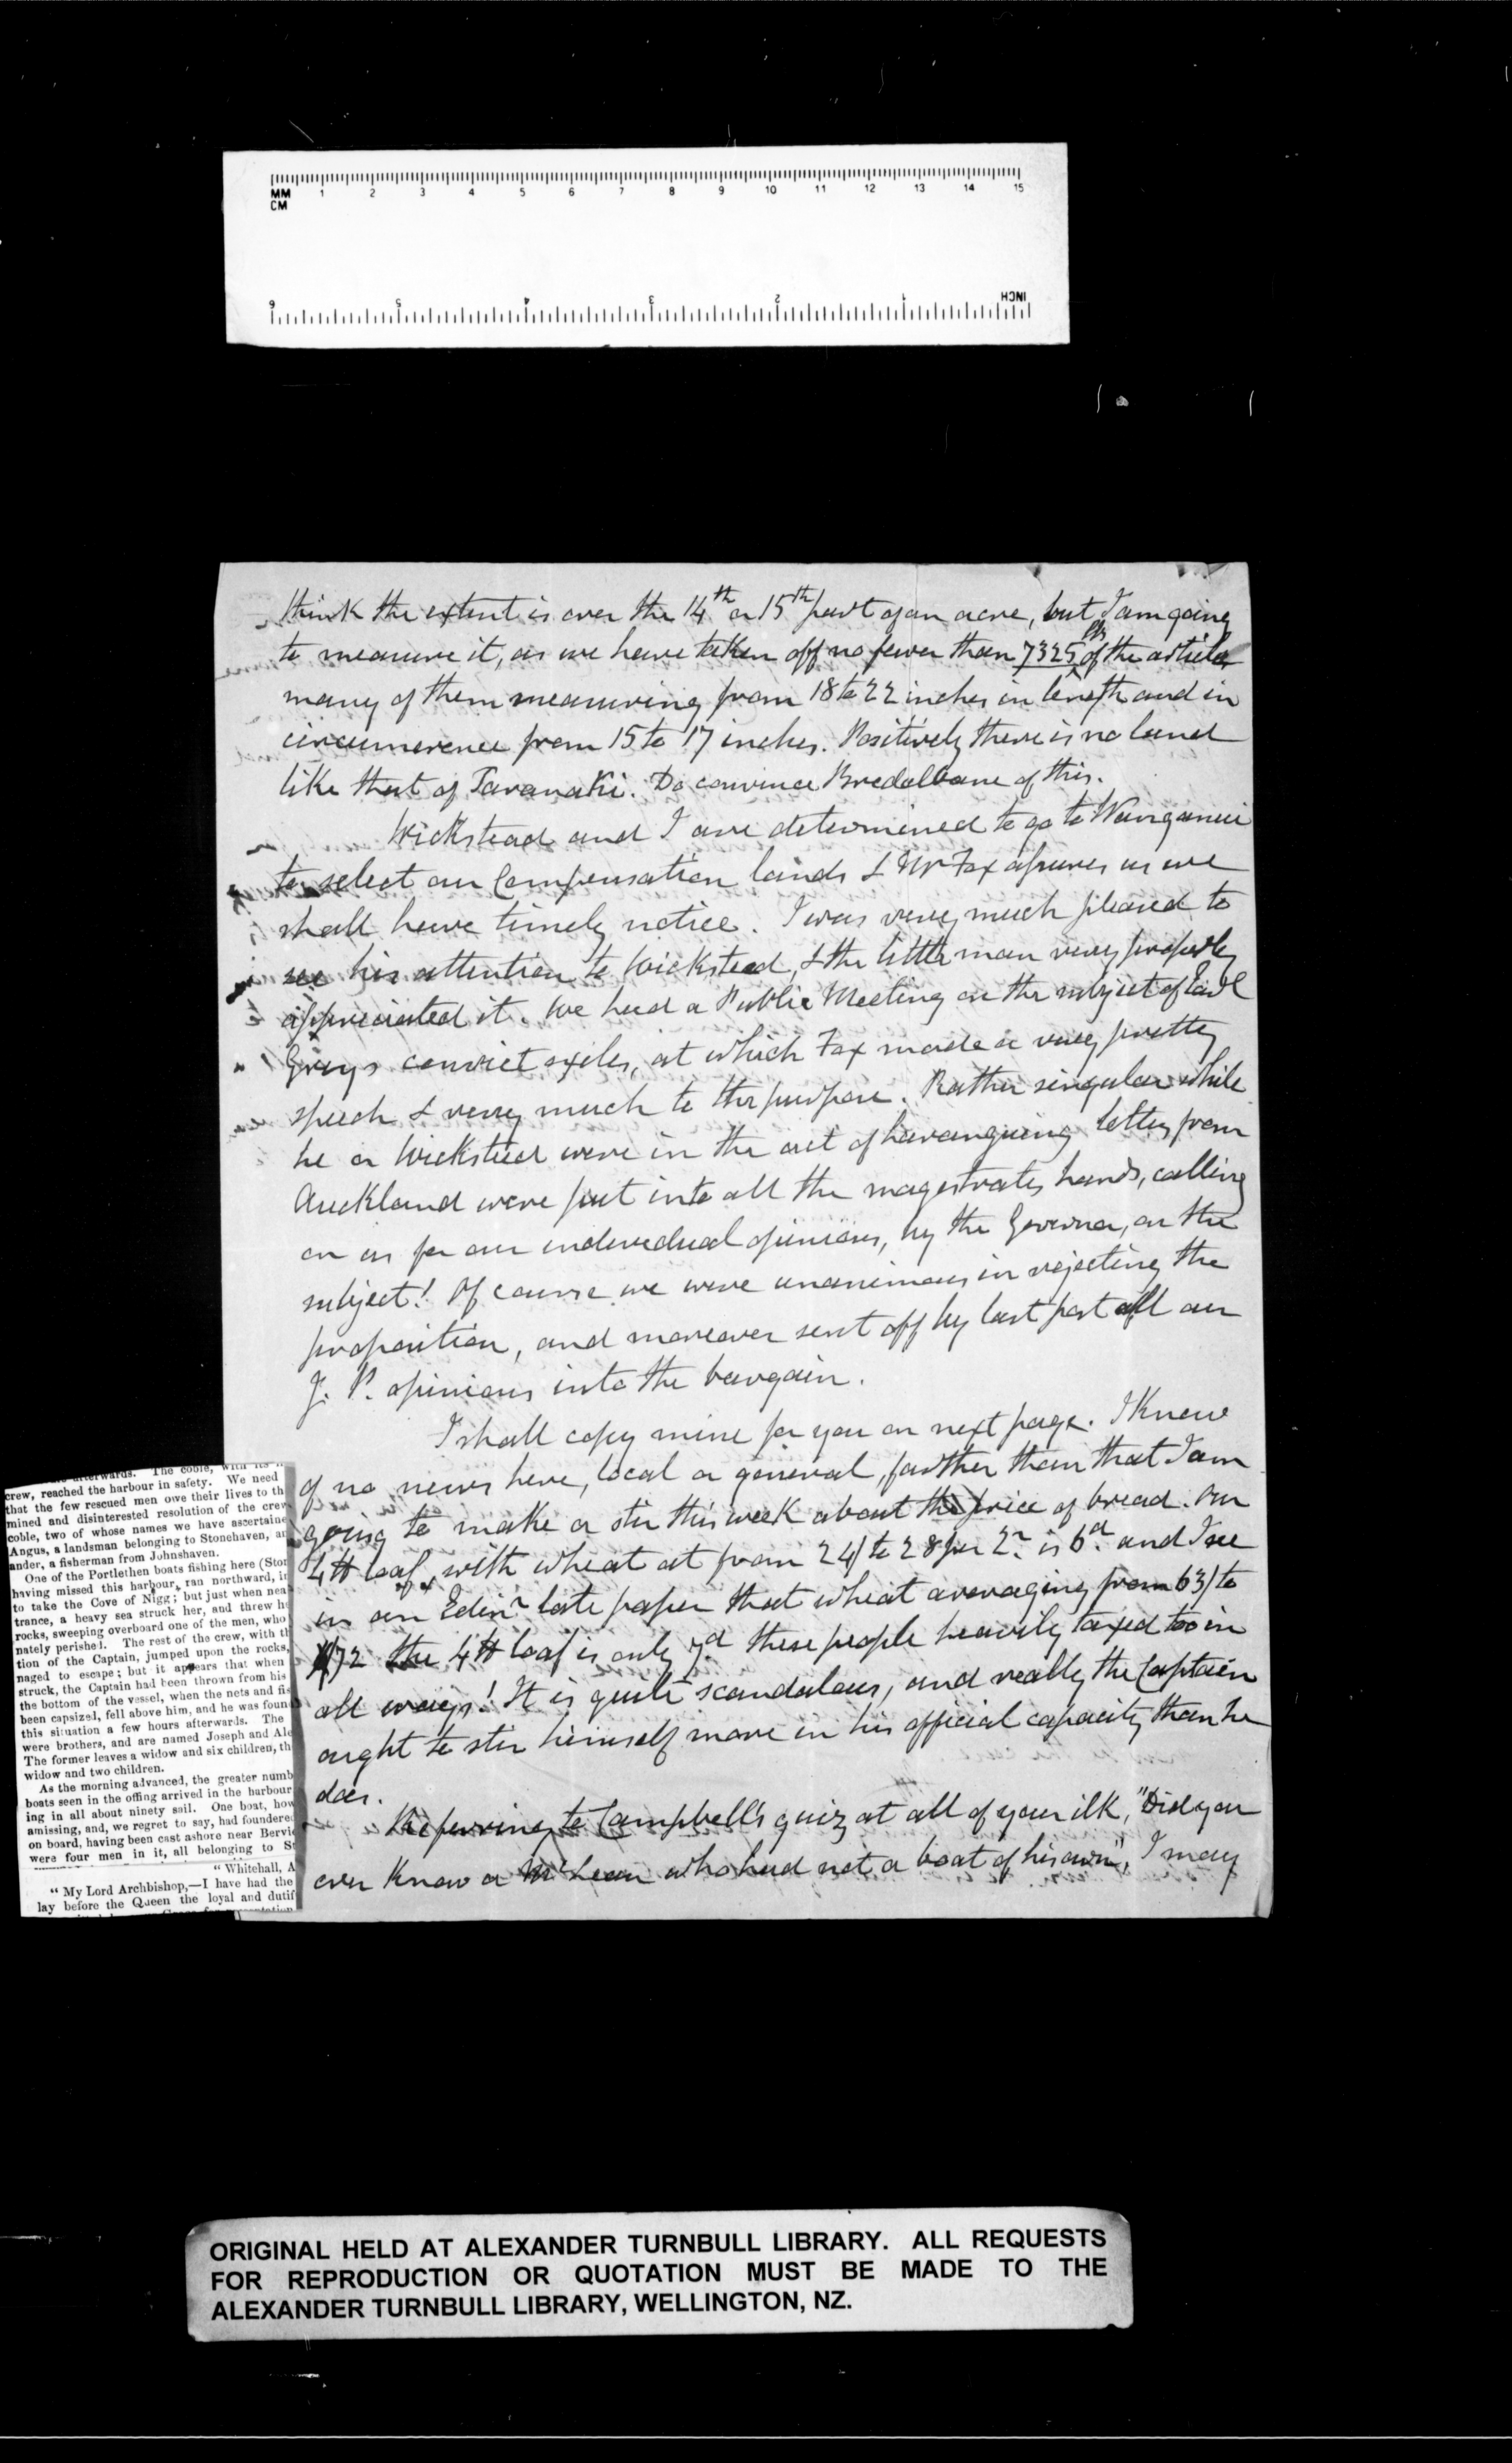 MM 1 2 3 4 5 6 7 8 9 10 11 12 13 14 15
CM
6 5 4 3 2 1 INCH
think the extent is over the 14th or 15th part of an acre, but I am going
to measure it, as we have taken off no fewer than 7325 lbs of the article
many of them measuring from 18 to 22 inches in length and in
circumerence from 15 to 17 inches. Positively there is no land
like that of Taranaki. Do convince Bredalbane of this.
Wickstead and I are determined to go to Wanganui
to select our Compensation lands & Mr Fox assures us we
shall have timely notice. I was very much pleased to
see his attention to Wicksteed, & the little man very properly
appreciated it. We had a Public Meeting on the subject of Earl
Greys convict exiles, at which Fox made a very pretty
speech & very much to the purpose. Rather singular while
he or Wicksteed were in the act of haranguing letters from
Auckland were put into all the magestrates hands, calling
on us for our indevedual opinions, by the Governor, on the
subject! Of course we were unanimous in rejecting the
proposition, and moreover sent off by last post all our
J. P. opinions into the bargain.
I shall copy mine for you on next page. I know
of no news here, local or general, farther than that I am
going to make a stir this week about the price of bread. Our
4 lb loaf, with wheat at from 24/ to 28 per Qr. is 6d. and I see
in an Edinr late paper that wheat averaging from 63/ to
72 the 4 lb loaf is only 7d these people heavily taxed too in
all ways! It is quite scandalous, and really the Captain
ought to stir himself more in his official capacity than he
does.
Referring to Campbell's quiz at all of your ilk, "Did you
ever know a McLean who had not a boat of his own", I may
afterwards. The coble, with its
crew, reached the harbour in safety. We need
that the few rescued men owe their lives to th
mined and disinterested resolution of the crew
coble, two of whose names we have ascertaine
Angus, a landsman belonging to Stonehaven, an
ander, a fisherman from Johnshaven.
One of the Portlethen boats fishing here (Ston
having missed this harbour, ran northward, in
to take the Cove of Nigg; but just when nea
trance, a heavy sea struck her, and threw he
rocks, sweeping overboard one of the men, who
nately perished. The rest of the crew, with th
tion of the Captain, jumped upon the rocks,
naged to escape; but it appears that when
struck, the Captain had been thrown from his
the bottom of the vessel, when the nets and fis
been capsized, fell above him, and he was foun
this situation a few hours afterwards. The
were brothers, and are named Joseph and Ale
The former leaves a widow and six children, th
widow and two children.
As the morning advanced, the greater numb
boats seen in the offing arrived in the harbour
ing in all about ninety sail. One boat, how
amissing, and, we regret to say, had foundered
on board, having been cast ashore near Bervie
were four men in it, all belonging to St
"Whitehall, A
"My Lord Archbishop,—I have had the
lay before the Queen the loyal and dutif
ORIGINAL HELD AT ALEXANDER TURNBULL LIBRARY. ALL REQUESTS
FOR REPRODUCTION OR QUOTATION MUST BE MADE TO THE
ALEXANDER TURNBULL LIBRARY, WELLINGTON, NZ.